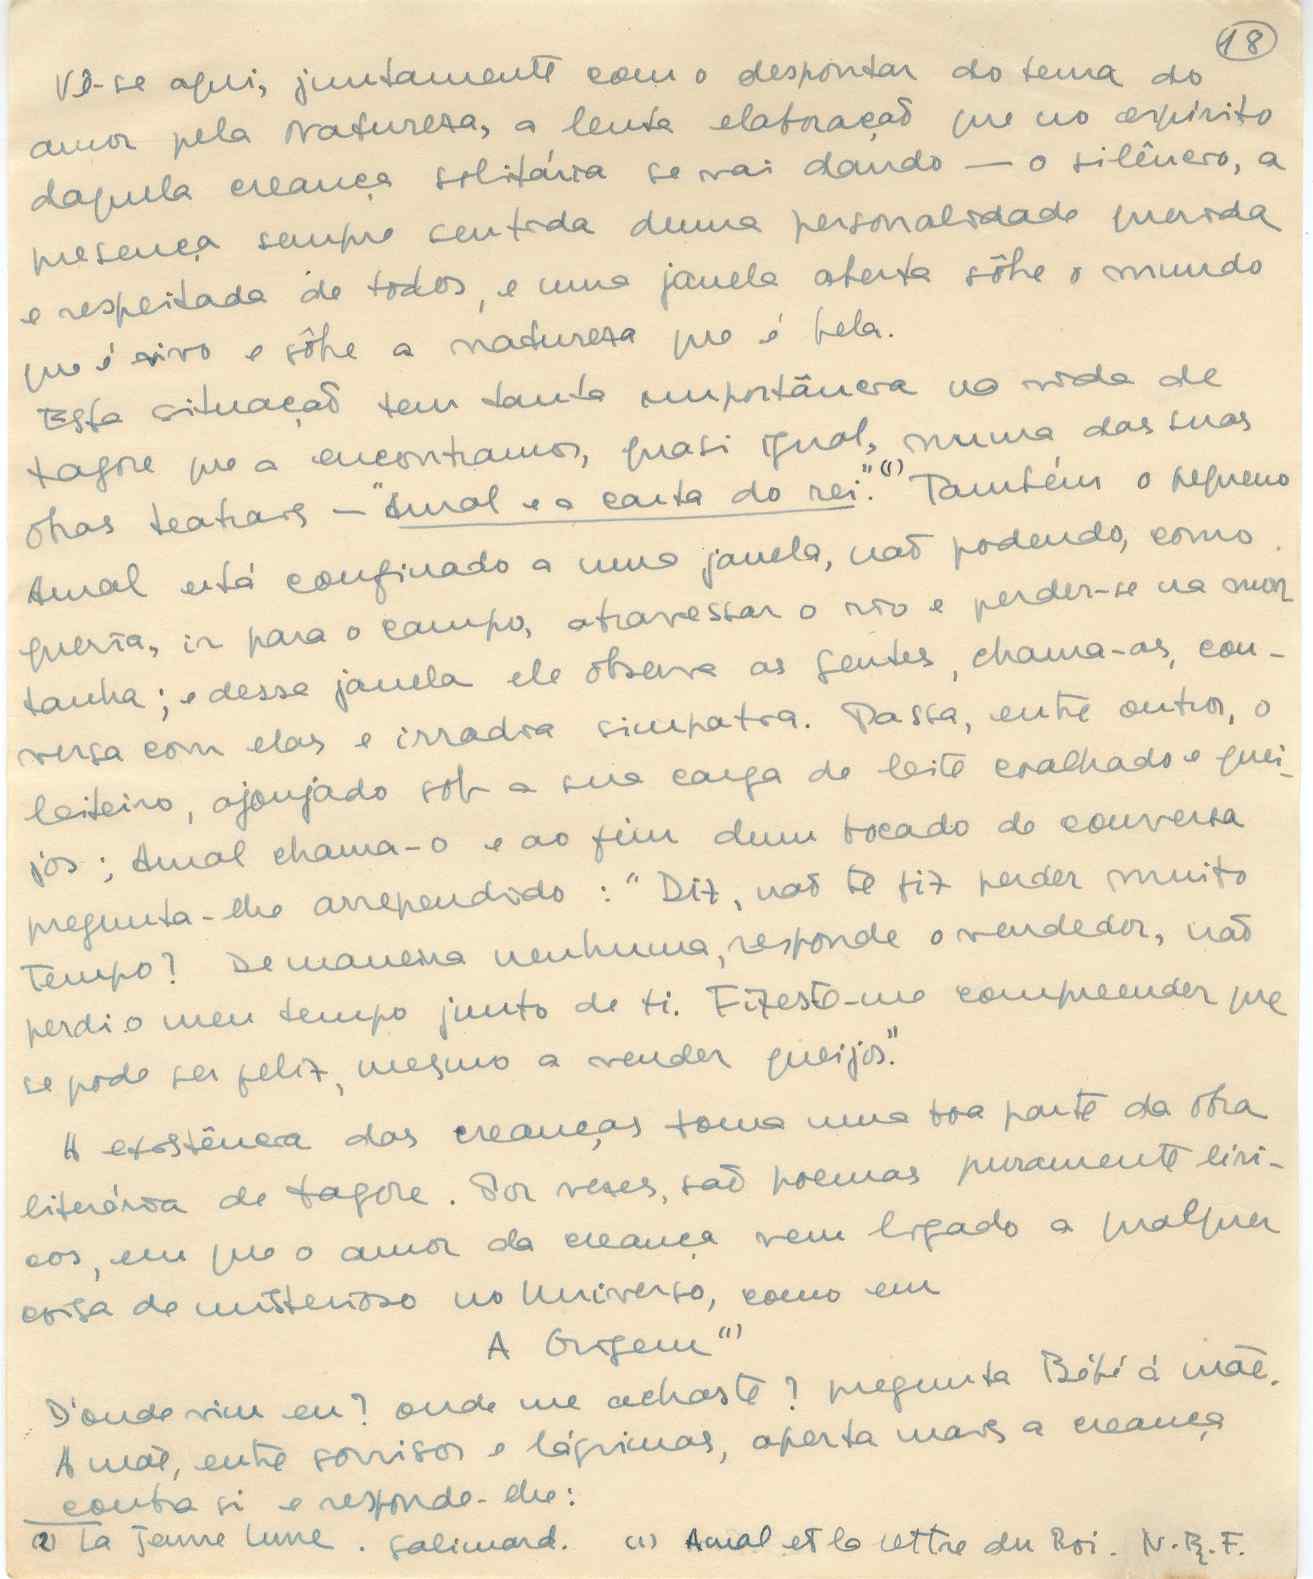 18
Vê-se aqui, juntamente com o despontar do tema do
amor pela Natureza, a lenta elaboração que no espírito
daquela creança solitária se vai dando — o silêncio, a
presença sempre sentida duma personalidade querida
e respeitada de todos, e uma janela aberta sôbre o mundo
que é vivo e sôbre a natureza que é bela.
Esta situação tem tanta importância na vida de
Tagore que a encontramos, quasi igual, numa das suas
obras teatrais — "Amal e a carta do rei".(1) Também o pequeno
Amal está confinado a uma janela, não podendo, como
queria, ir para o campo, atravessar o rio e perder-se na mon
tanha; e dessa janela ele observa as gentes, chama-as, con-
versa com elas e irradia simpatia. Passa, entre outros, o
leiteiro, ajoujado sob a sua carga de leite coalhado e quei-
jos; Amal chama-o e ao fim dum bocado de conversa
pregunta-lhe arrependido: "Diz, não te fiz perder muito
tempo? De maneira nenhuma, responde o vendedor, não
perdi o meu tempo junto de ti. Fizeste-me compreender que
se pode ser feliz, mesmo a vender queijos."
A existência das creanças toma uma boa parte da obra
literária de Tagore. Por vezes, são poemas puramente líri-
cos, em que o amor da creança vem ligado a qualquer
coisa de misterioso no Universo, como em
A Origem(1)
D'onde vim eu? onde me achaste? pregunta Bébé à mãe.
A mãe, entre sorrisos e lágrimas, aperta mais a creança
contra si e responde-lhe:
(2) La Jeune Lune. Galimard. (1) Amal et la lettre du Roi. N.R.F.